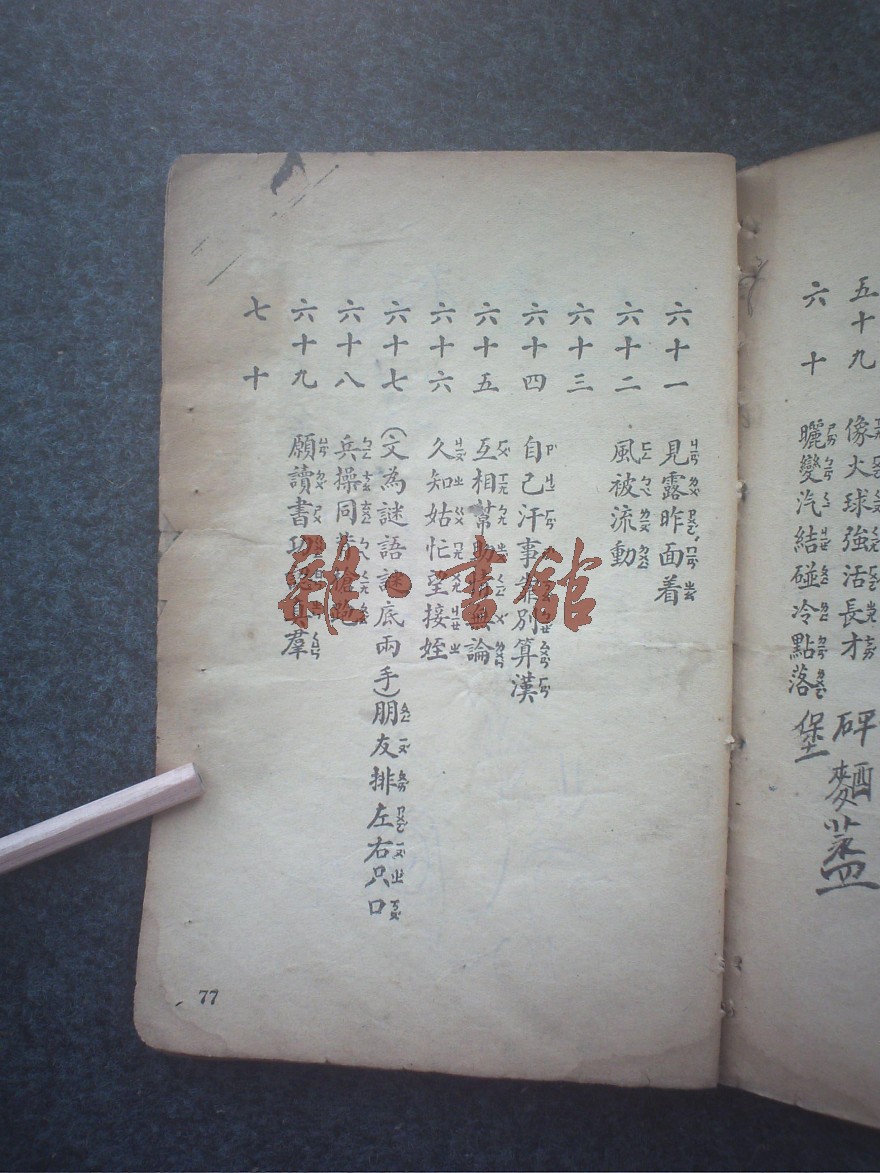 五十九 像火球強活長才 砰麵蒸
六十 曬變汽結碰冷點落 堡
六十一 見露昨面着
六十二 風被流動
六十三
六十四 自己汗事靠別算漢
六十五 互相幫助情無論
六十六 久知姑忙望接姪
六十七 (文為謎語謎底兩手)朋友排左右只口
六十八 兵操同槍跑
六十九 願讀書功認真羣
七十
77
雜·書館